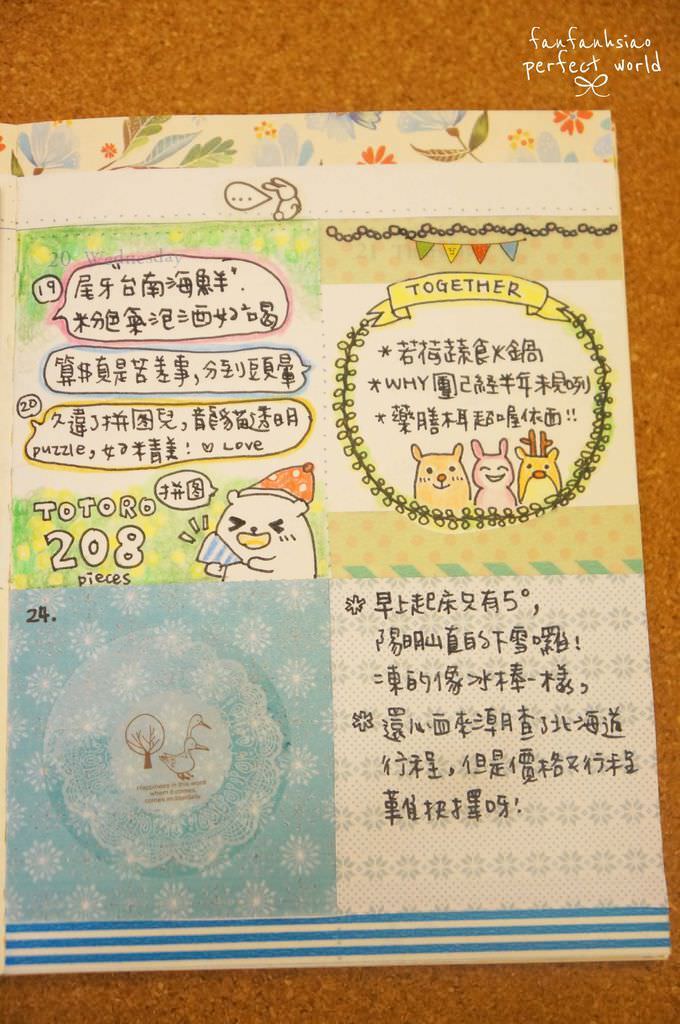 fanfanhsiao
perfect world
...
20 Wednesday
19
尾牙"台南海鮮".
粉色氣泡酒好喝
算牌真是苦差事,分到頭暈
20
久違了拼图兒,龍貓透明
puzzle,好精美! Love
拼图
TOTORO
208
pieces
TOGETHER
*若荷蔬食火鍋
*WHY團已經半年未見咧
*藥膳木耳超喔依西!!
24.
Happiness in this world,
when it comes,
comes incidentally.
早上起床只有5°,
陽明山真的下雪囉!
凍的像冰棒一樣,
還心血來潮查了北海道
行程,但是價格又行程
難抉擇呀!